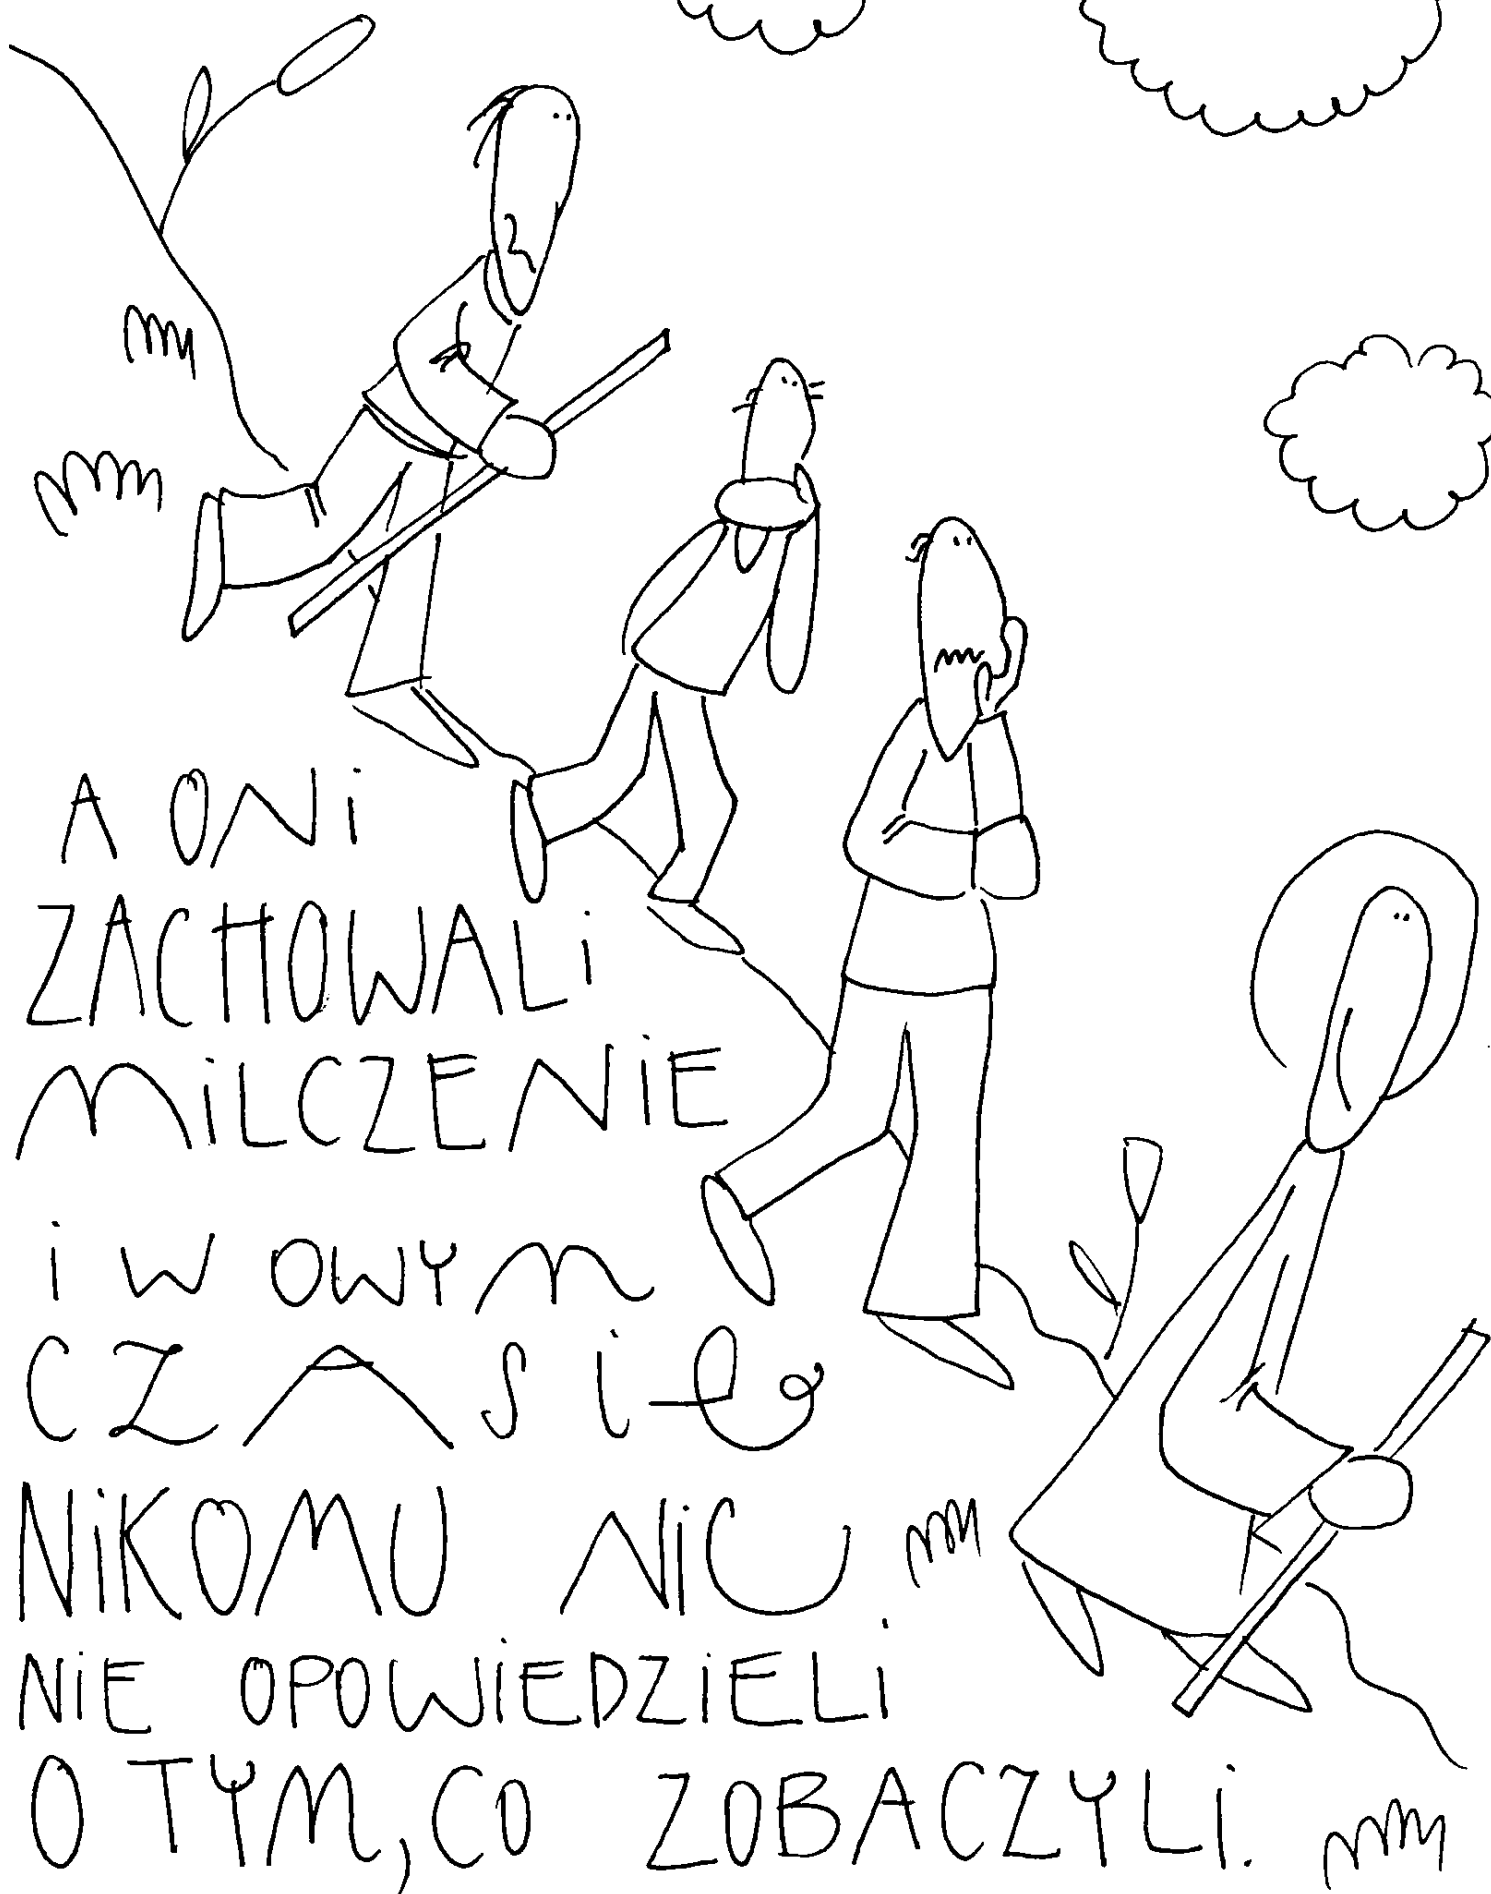 A ONi
ZACHOWALi
MiLCZENiE
i W OWYM
CZASiE
NiKOMU NiC
NiE OPOWiEDZiELi
O TYM, CO ZOBACZYLi.